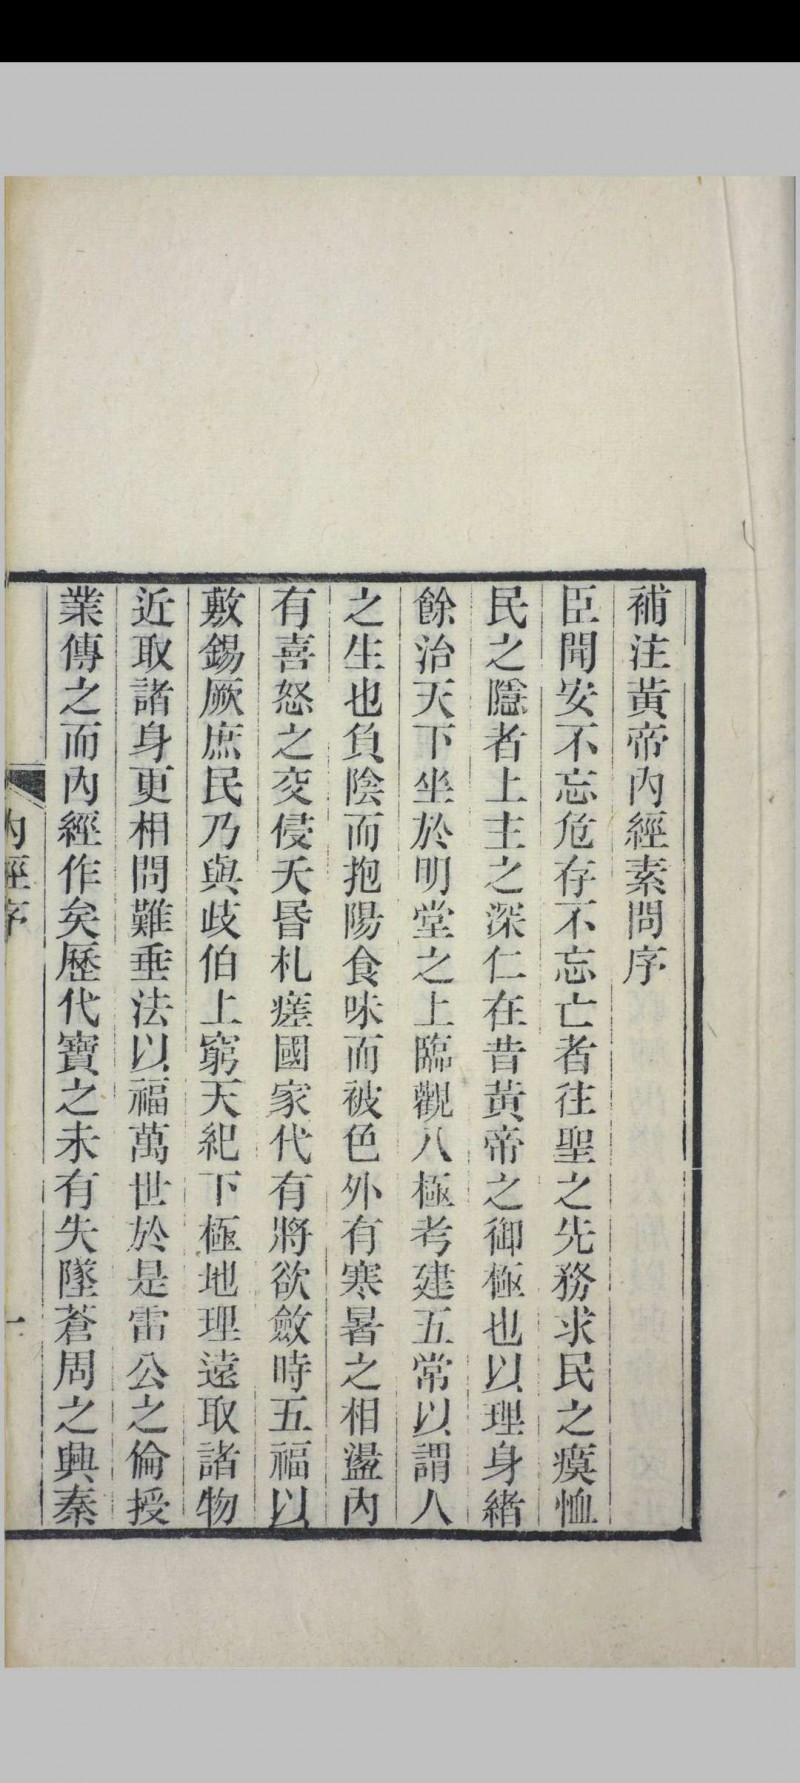 補注黃帝內經素問序
臣聞安不忘危存不忘亡者往聖之先務求民之瘼恤
民之隱者上主之深仁在昔黃帝之御極也以理身緒
餘治天下坐於明堂之上臨觀八極考建五常以謂人
之生也負陰而抱陽食味而被色外有寒暑之相盪內
有喜怒之交侵夭昬札瘥國家代有將欲斂時五福以
敷錫厥庶民乃與歧伯上窮天紀下極地理遠取諸物
近取諸身更相問難垂法以福萬世於是雷公之倫授
業傳之而內經作矣歷代寶之未有失墜蒼周之興秦
內經序
一